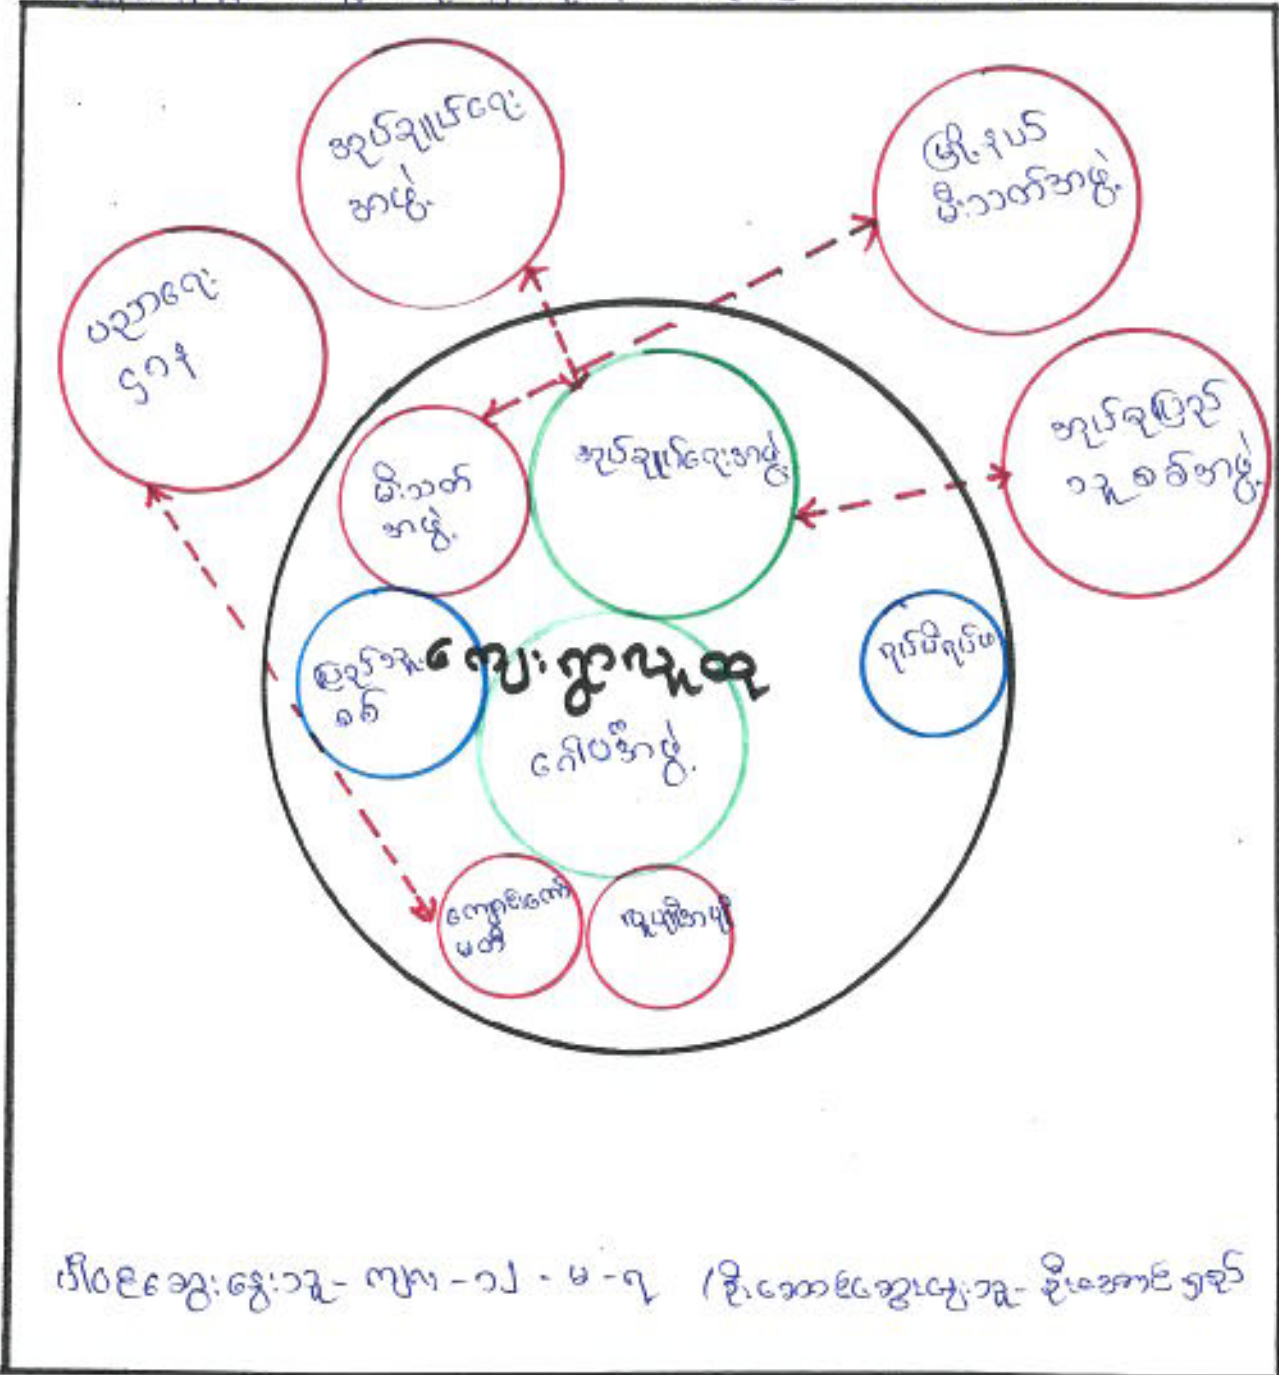 အုပ်ချုပ်ရေး
အဖွဲ့
မြို့နယ်
မီးသတ်အဖွဲ့
ပညာရေး
ဌာန
အုပ်စုပြည်
သူ့စစ်အဖွဲ့
အုပ်ချုပ်ရေးအဖွဲ့
မီးသတ်
အဖွဲ့
ပြည်သူ့
စစ်
ကျေးရွာလူထု
ရပ်မိရပ်ဖ
ဂေါပကအဖွဲ့
ကျောင်းကော်
မတီ
ပါဝင်ဆွေးနွေးသူ - ကျား - ၁၂ - မ - ၇ (ဦးဆောင်ဆွေးနွေးသူ - ဦးအောင်